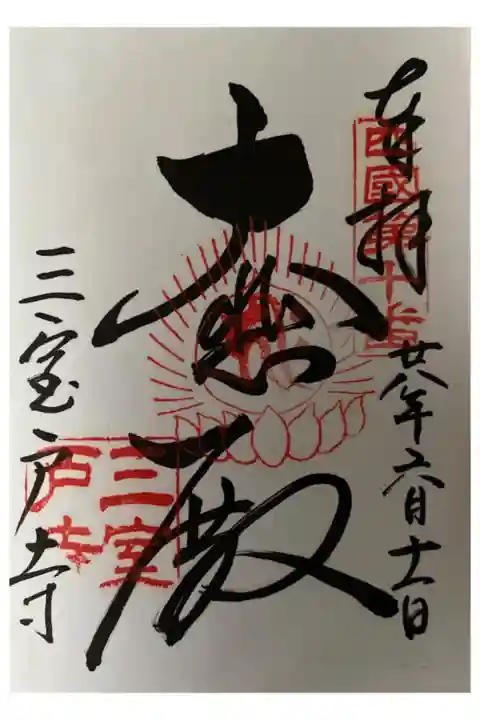 奉拝
西國第十番
廿八年六月十一日
大悲殿
三室戸寺
三室戸寺